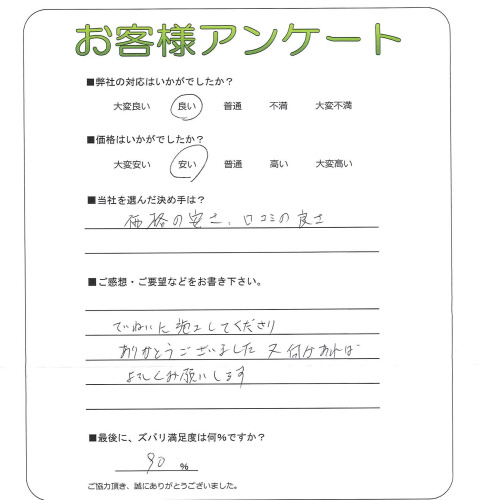 お客様アンケート
■弊社の対応はいかがでしたか？
大変良い 良い 普通 不満 大変不満
■価格はいかがでしたか？
大変安い 安い 普通 高い 大変高い
■当社を選んだ決め手は？
価格の安さ、口コミの良さ
■ご感想・ご要望などをお書き下さい。
ていねいに施工してくださり
ありがとうございました 又 何かあれば
よろしくお願いします
■最後に、ズバリ満足度は何％ですか？
90 ％
ご協力頂き、誠にありがとうございました。